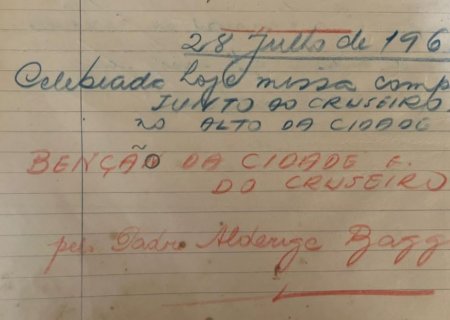 28 Julho de 196
Celebrada hoje missa camp
JUNTO AO CRUSEIRO
no ALTO DA CIDADE
BENÇÃO DA CIDADE E.
DO CRUSEIRO
pe. Padre Alderige Bagg